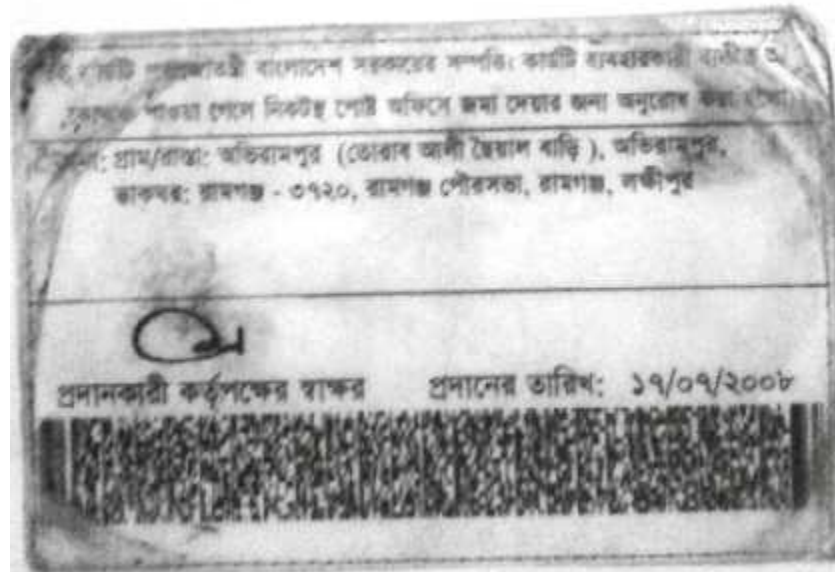 কার্ডটি গণপ্রজাতন্ত্রী বাংলাদেশ সরকারের সম্পত্তি। কার্ডটি ব্যবহারকারী ব্যতীত অ
কোথাও পাওয়া গেলে নিকটস্থ পোষ্ট অফিসে জমা দেয়ার জন্য অনুরোধ করা
গ্রাম/রাস্তা: অভিরামপুর (তোরাব আলী ছৈয়াল বাড়ি ), অভিরামপুর,
ডাকঘর: রামগঞ্জ - ৩৭২০, রামগঞ্জ পৌরসভা, রামগঞ্জ, লক্ষীপুর
প্রদানকারী কর্তৃপক্ষের স্বাক্ষর প্রদানের তারিখ: ১৭/০৭/২০০৮